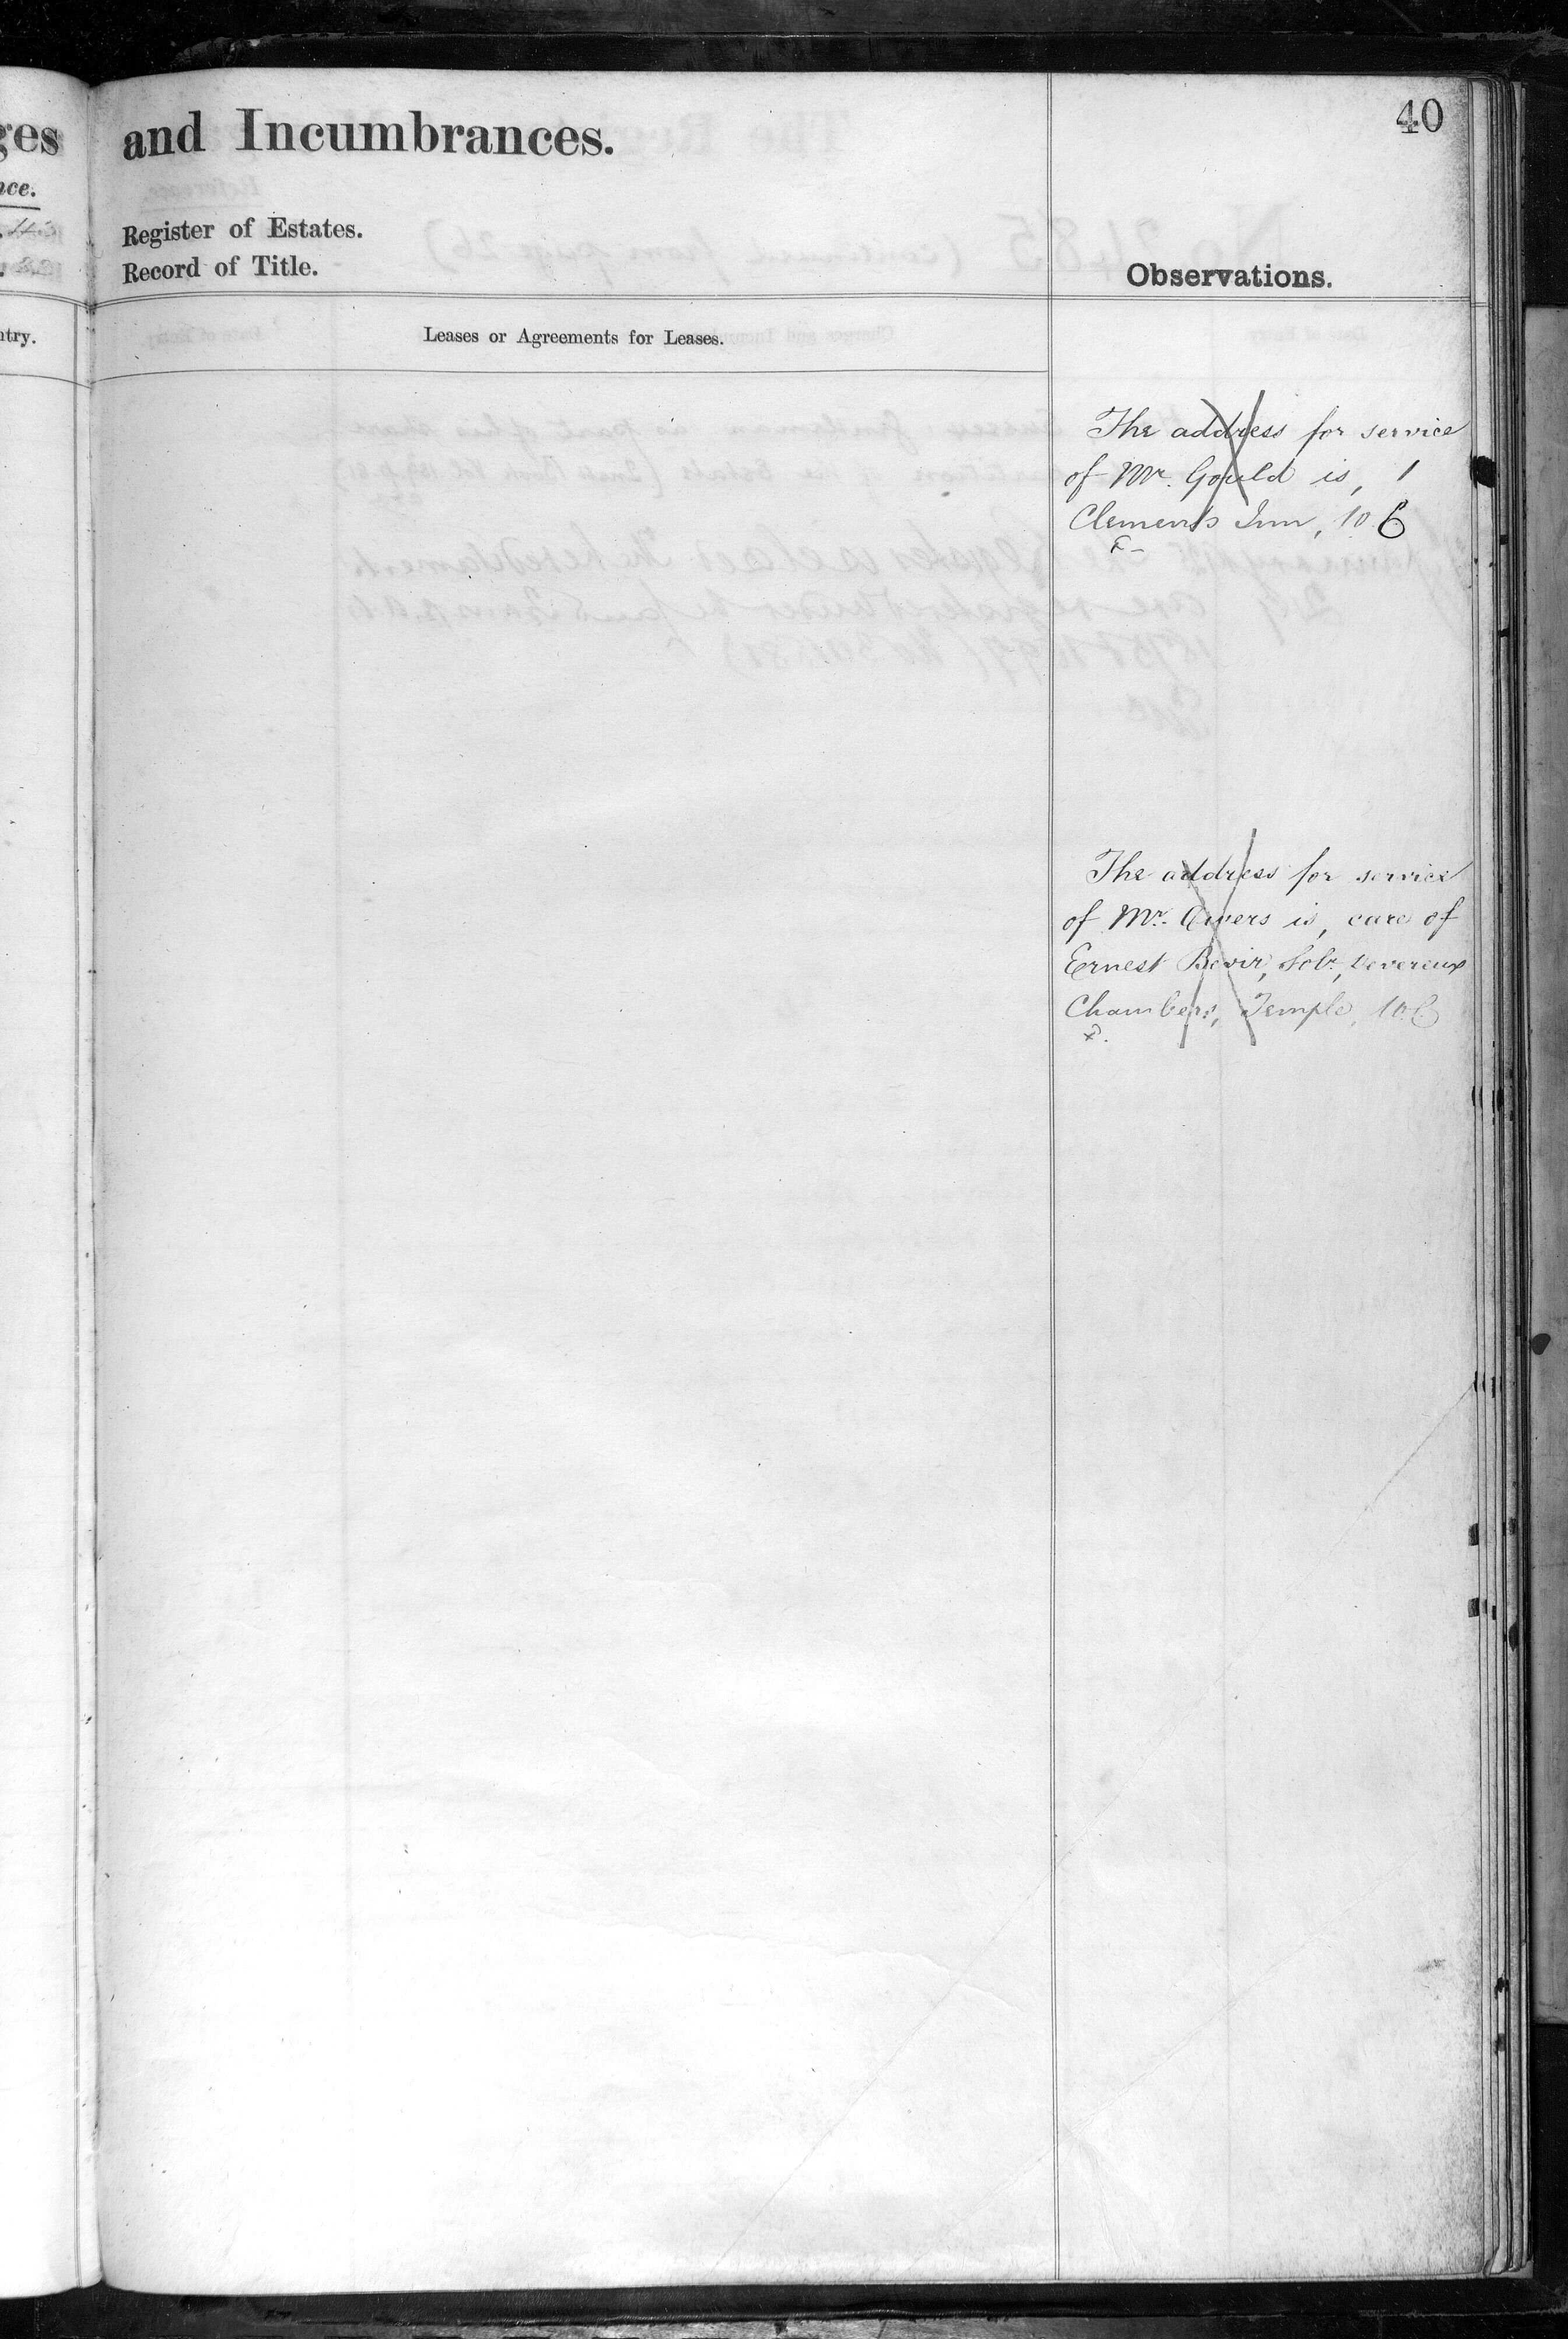 ges
and Incumbrances.
40
nce.
Register of Estates.
Record of Title.
Observations.
ntry.
Leases or Agreements for Leases.
The address for service
of Mr. Gould is, 1
Clements Inn, W.C
The address for service
of Mr. is, care of
Ernest Bevir, Solr, Devereux
Chambers, Temple, W.C